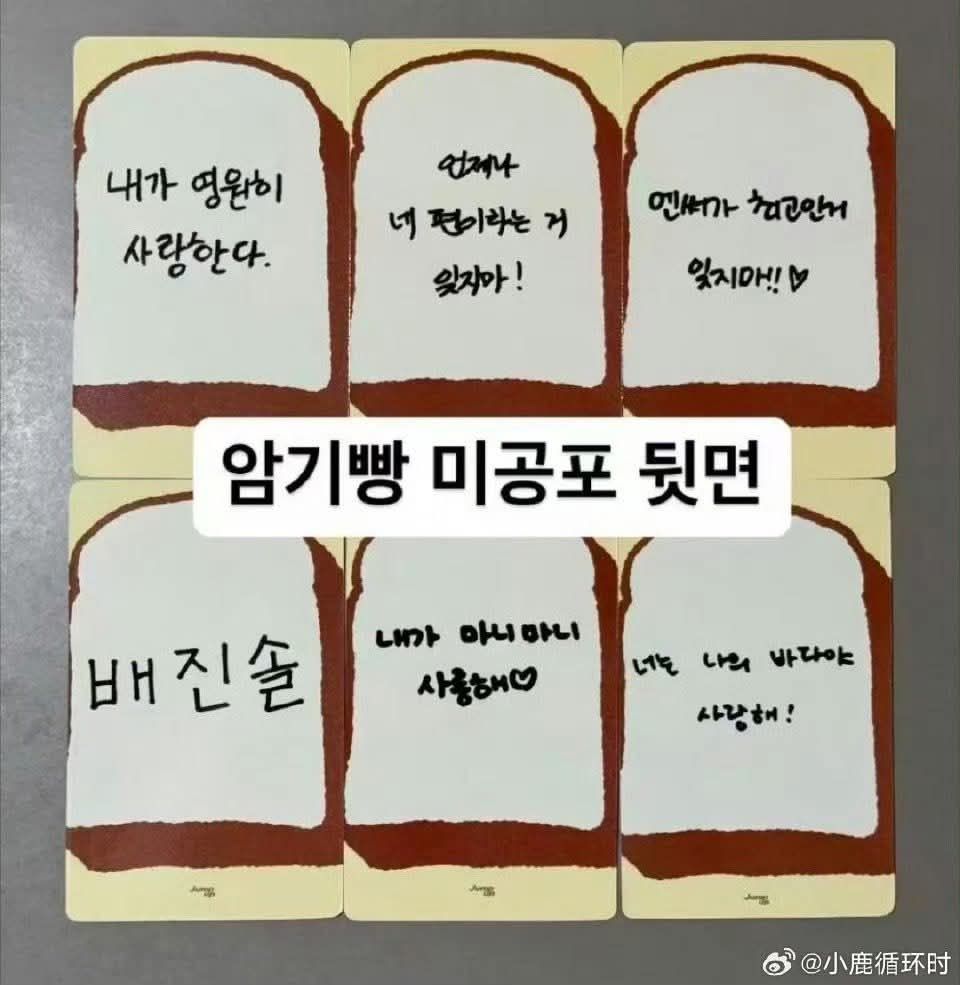 내가 영원히
사랑한다.
언제나
네 편이라는 거
잊지마!
엔써가 최고인거
잊지마!!♡
암기빵 미공포 뒷면
배진솔
내가 마니마니
사릉해♡
너는 나의 바다야
사랑해!
Jump UP
Jump UP
Jump UP
@小鹿循环时